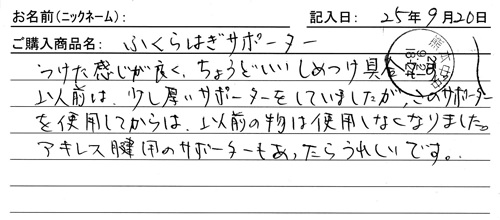 お名前(ニックネーム): 記入日: 25年9月20日
ご購入商品名: ふくらはぎサポーター
つけた感じが良く、ちょうどいいしめつけ具合
以前は、少し厚いサポーターをしていましたが、このサポーター
を使用してからは、以前の物は使用しなくなりました。
アキレス腱用のサポーターもあったらうれしいです。